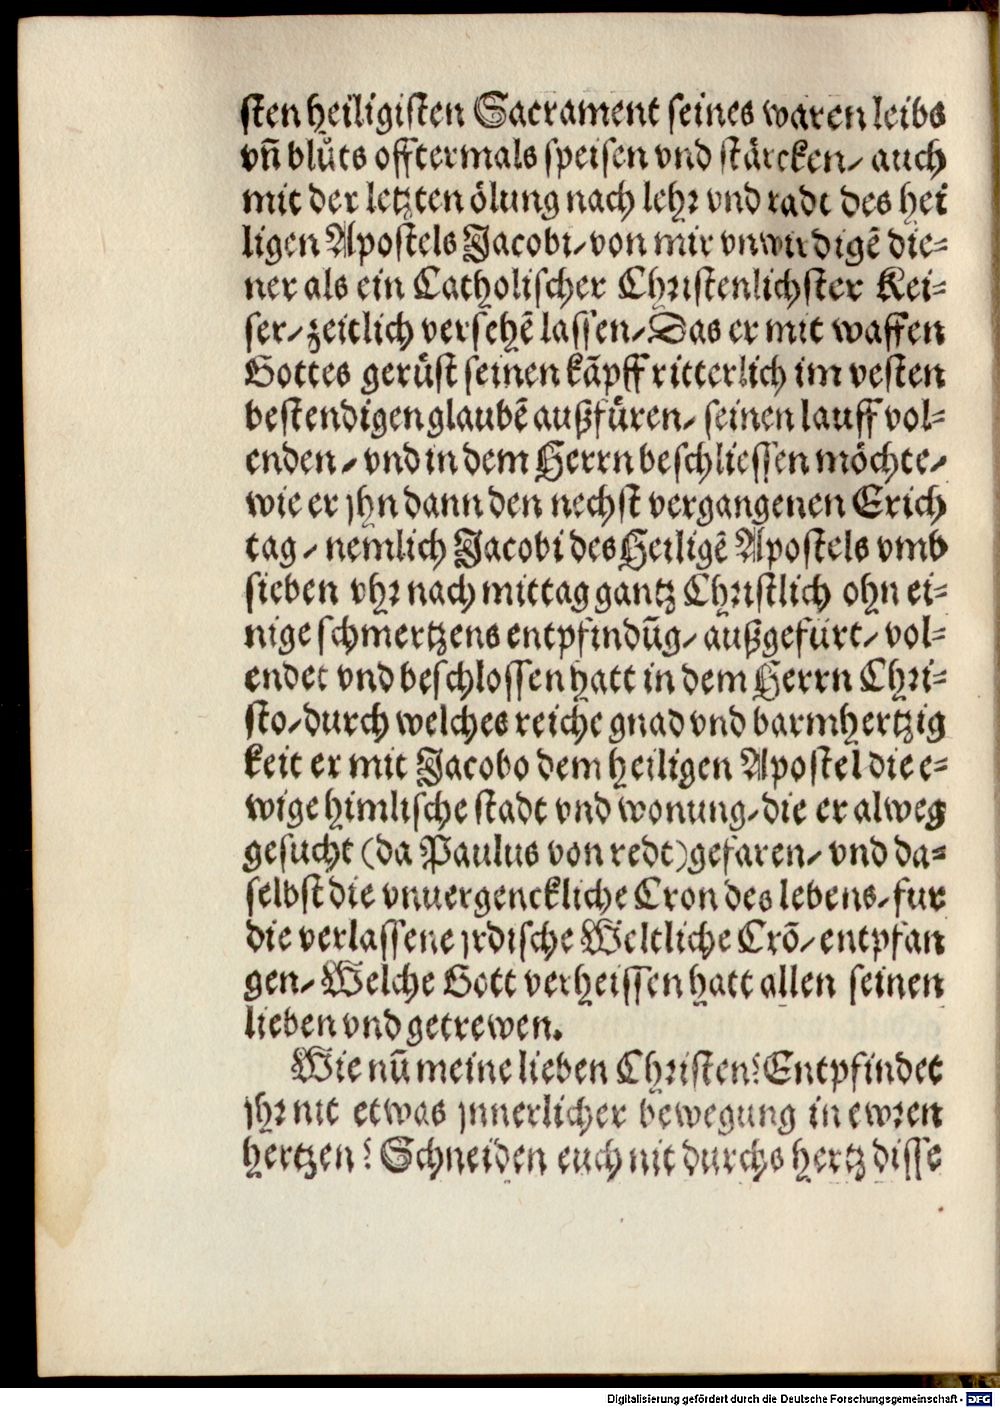 sten heiligisten Sacrament seines waren leibs
vñ blůts offtermals speisen vnd stärcken/ auch
mit der letzten ölung nach lehr vnd radt des hei
ligen Apostels Jacobi/ von mir vnwirdigē die=
ner als ein Catholischer Christenlichster Kei=
ser/ zeitlich versehē lassen/ Das er mit waffen
Gottes gerüst seinen kāpff ritterlich im vesten
bestendigen glaubē außfüren/ seinen lauff vol=
enden/ vnd in dem Herrn beschliessen möchte/
wie er jhn dann den nechst vergangenen Erich
tag/ nemlich Jacobi des Heiligē Apostels vmb
sieben vhr nach mittag gantz Christlich ohn ei=
nige schmertzens entpfindūg/ außgefürt/ vol=
endet vnd beschlossen hatt in dem Herrn Chri=
sto/ durch welches reiche gnad vnd barmhertzig
keit er mit Jacobo dem heiligen Apostel die e=
wige himlische stadt vnd wonung/ die er alweg
gesucht (da Paulus von redt) gefaren/ vnd da=
selbst die vnuergenckliche Cron des lebens/ fur
die verlassene jrdische Weltliche Crō/ entpfan
gen/ Welche Gott verheissen hatt allen seinen
lieben vnd getrewen.
Wie nū meine lieben Christen? Entpfindet
jhr nit etwas jnnerlicher bewegung in ewren
hertzen? Schneiden euch nit durchs hertz disse
Digitalisierung gefördert durch die Deutsche Forschungsgemeinschaft - DFG